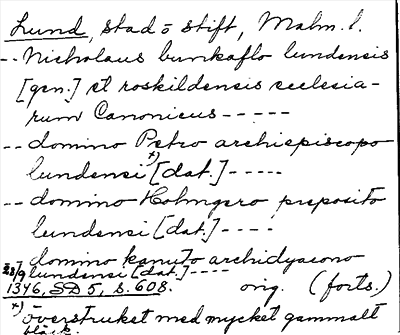 Lund, stad o stift, Malm. l.
-- Nicholaus bunkaflo lundensis
[gen.] et roskildensis ecclesia-
rum Canonicus -----
-- domino Petro archiepiscopo
lundensi +) [dat.] -----
-- domino Holmgero preposito
lundensi [dat.] ----
domino kanuto archidyacono
lundensi [dat.] ----
23/9
1346, SD 5, s. 608. orig. (forts.)
+) överstruket med mycket gammalt
bläck.